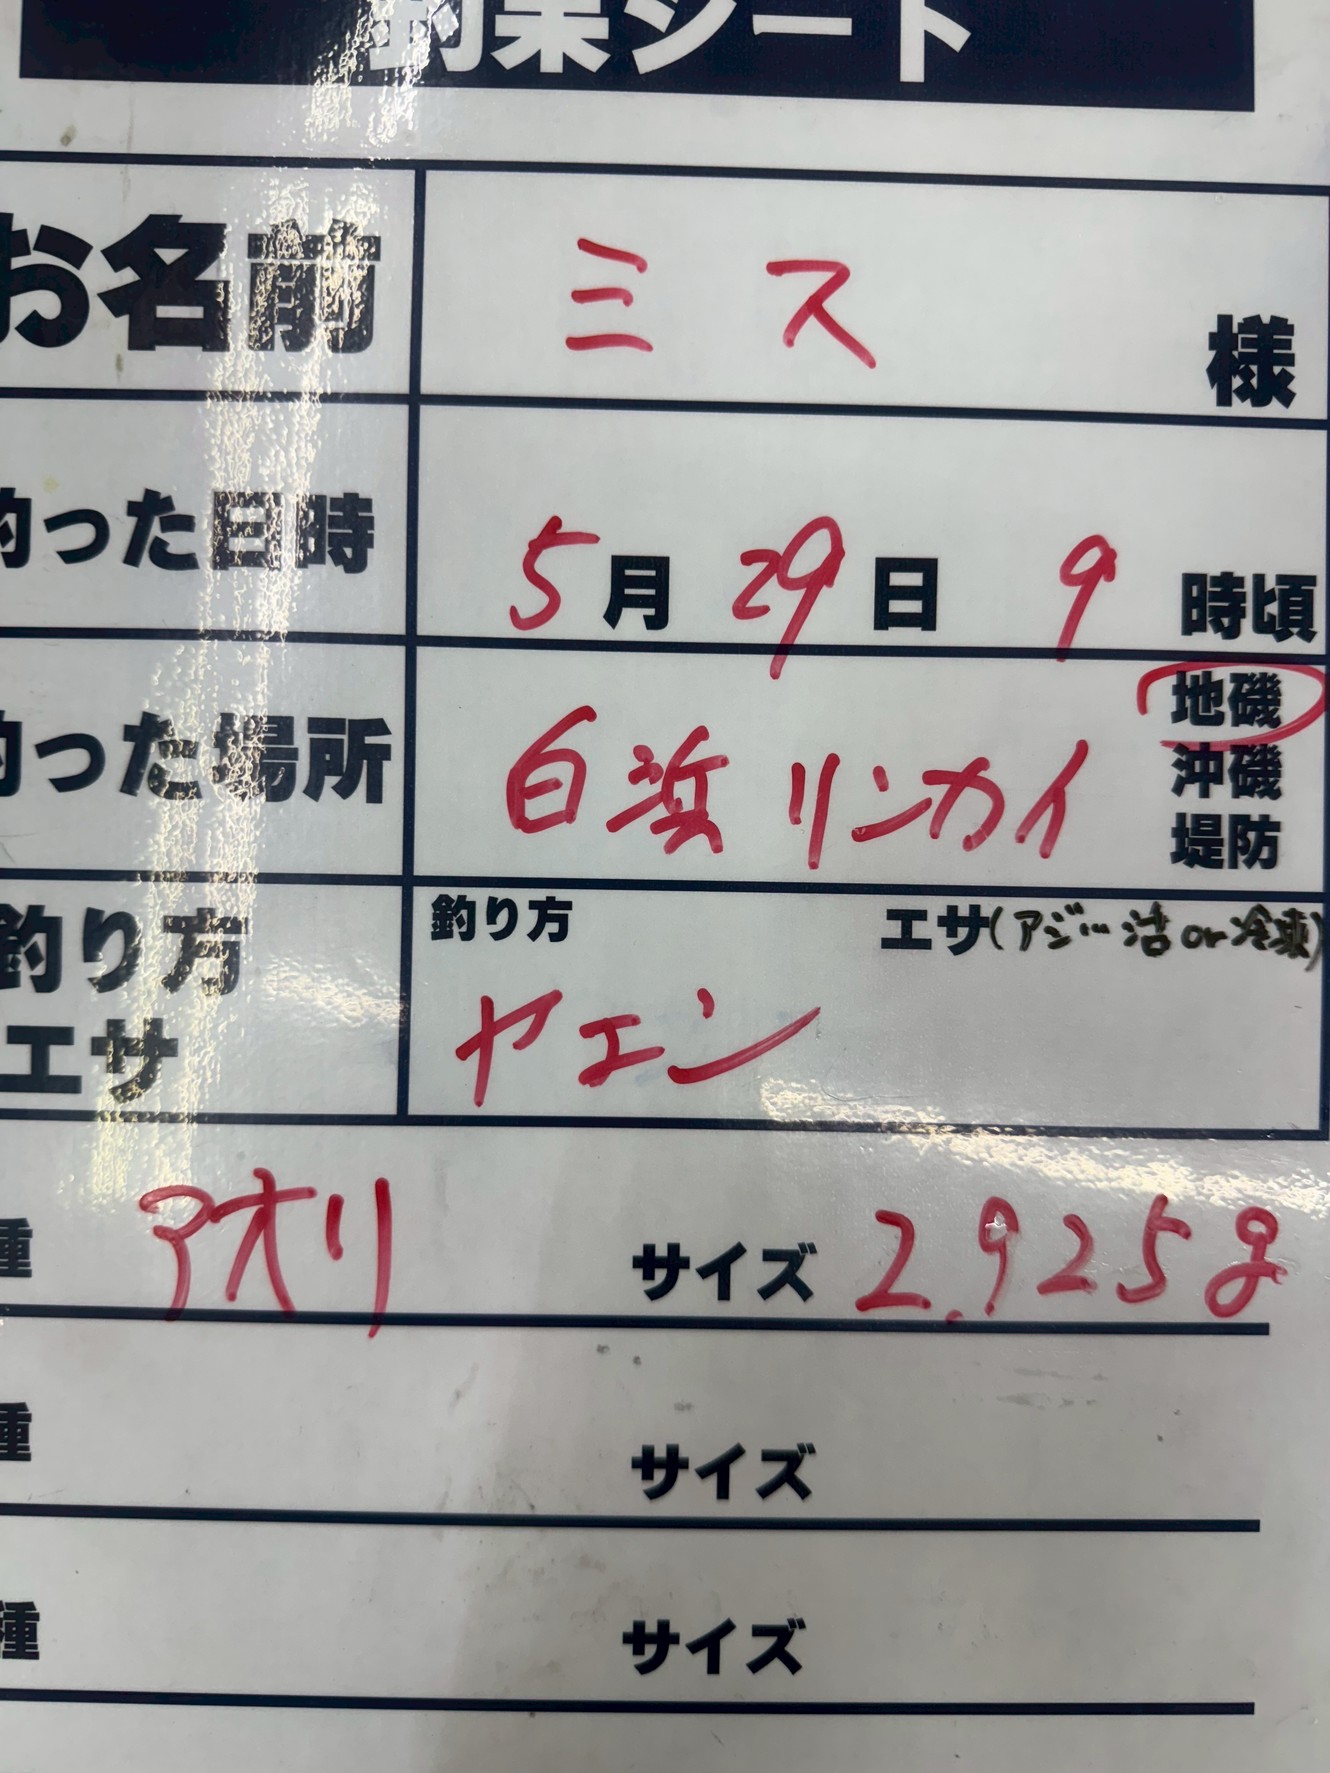 釣果シート
お名前 ミス 様
釣った日時 5月29日 9時頃
地磯
釣った場所 白浜リンカイ 沖磯
堤防
釣り方 釣り方 エサ(アジ…活or冷凍)
エサ ヤエン
種 アオリ サイズ 2.925g
種 サイズ
種 サイズ